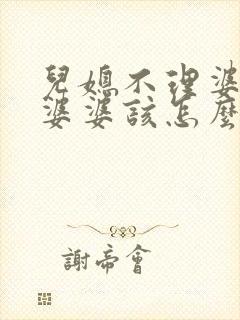 兒媳不理婆
婆婆該怎麼
謝帝會